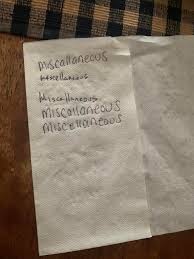 miscallaneous
miscellaneous
Miscellaneous
miscallaneous
miscellaneous